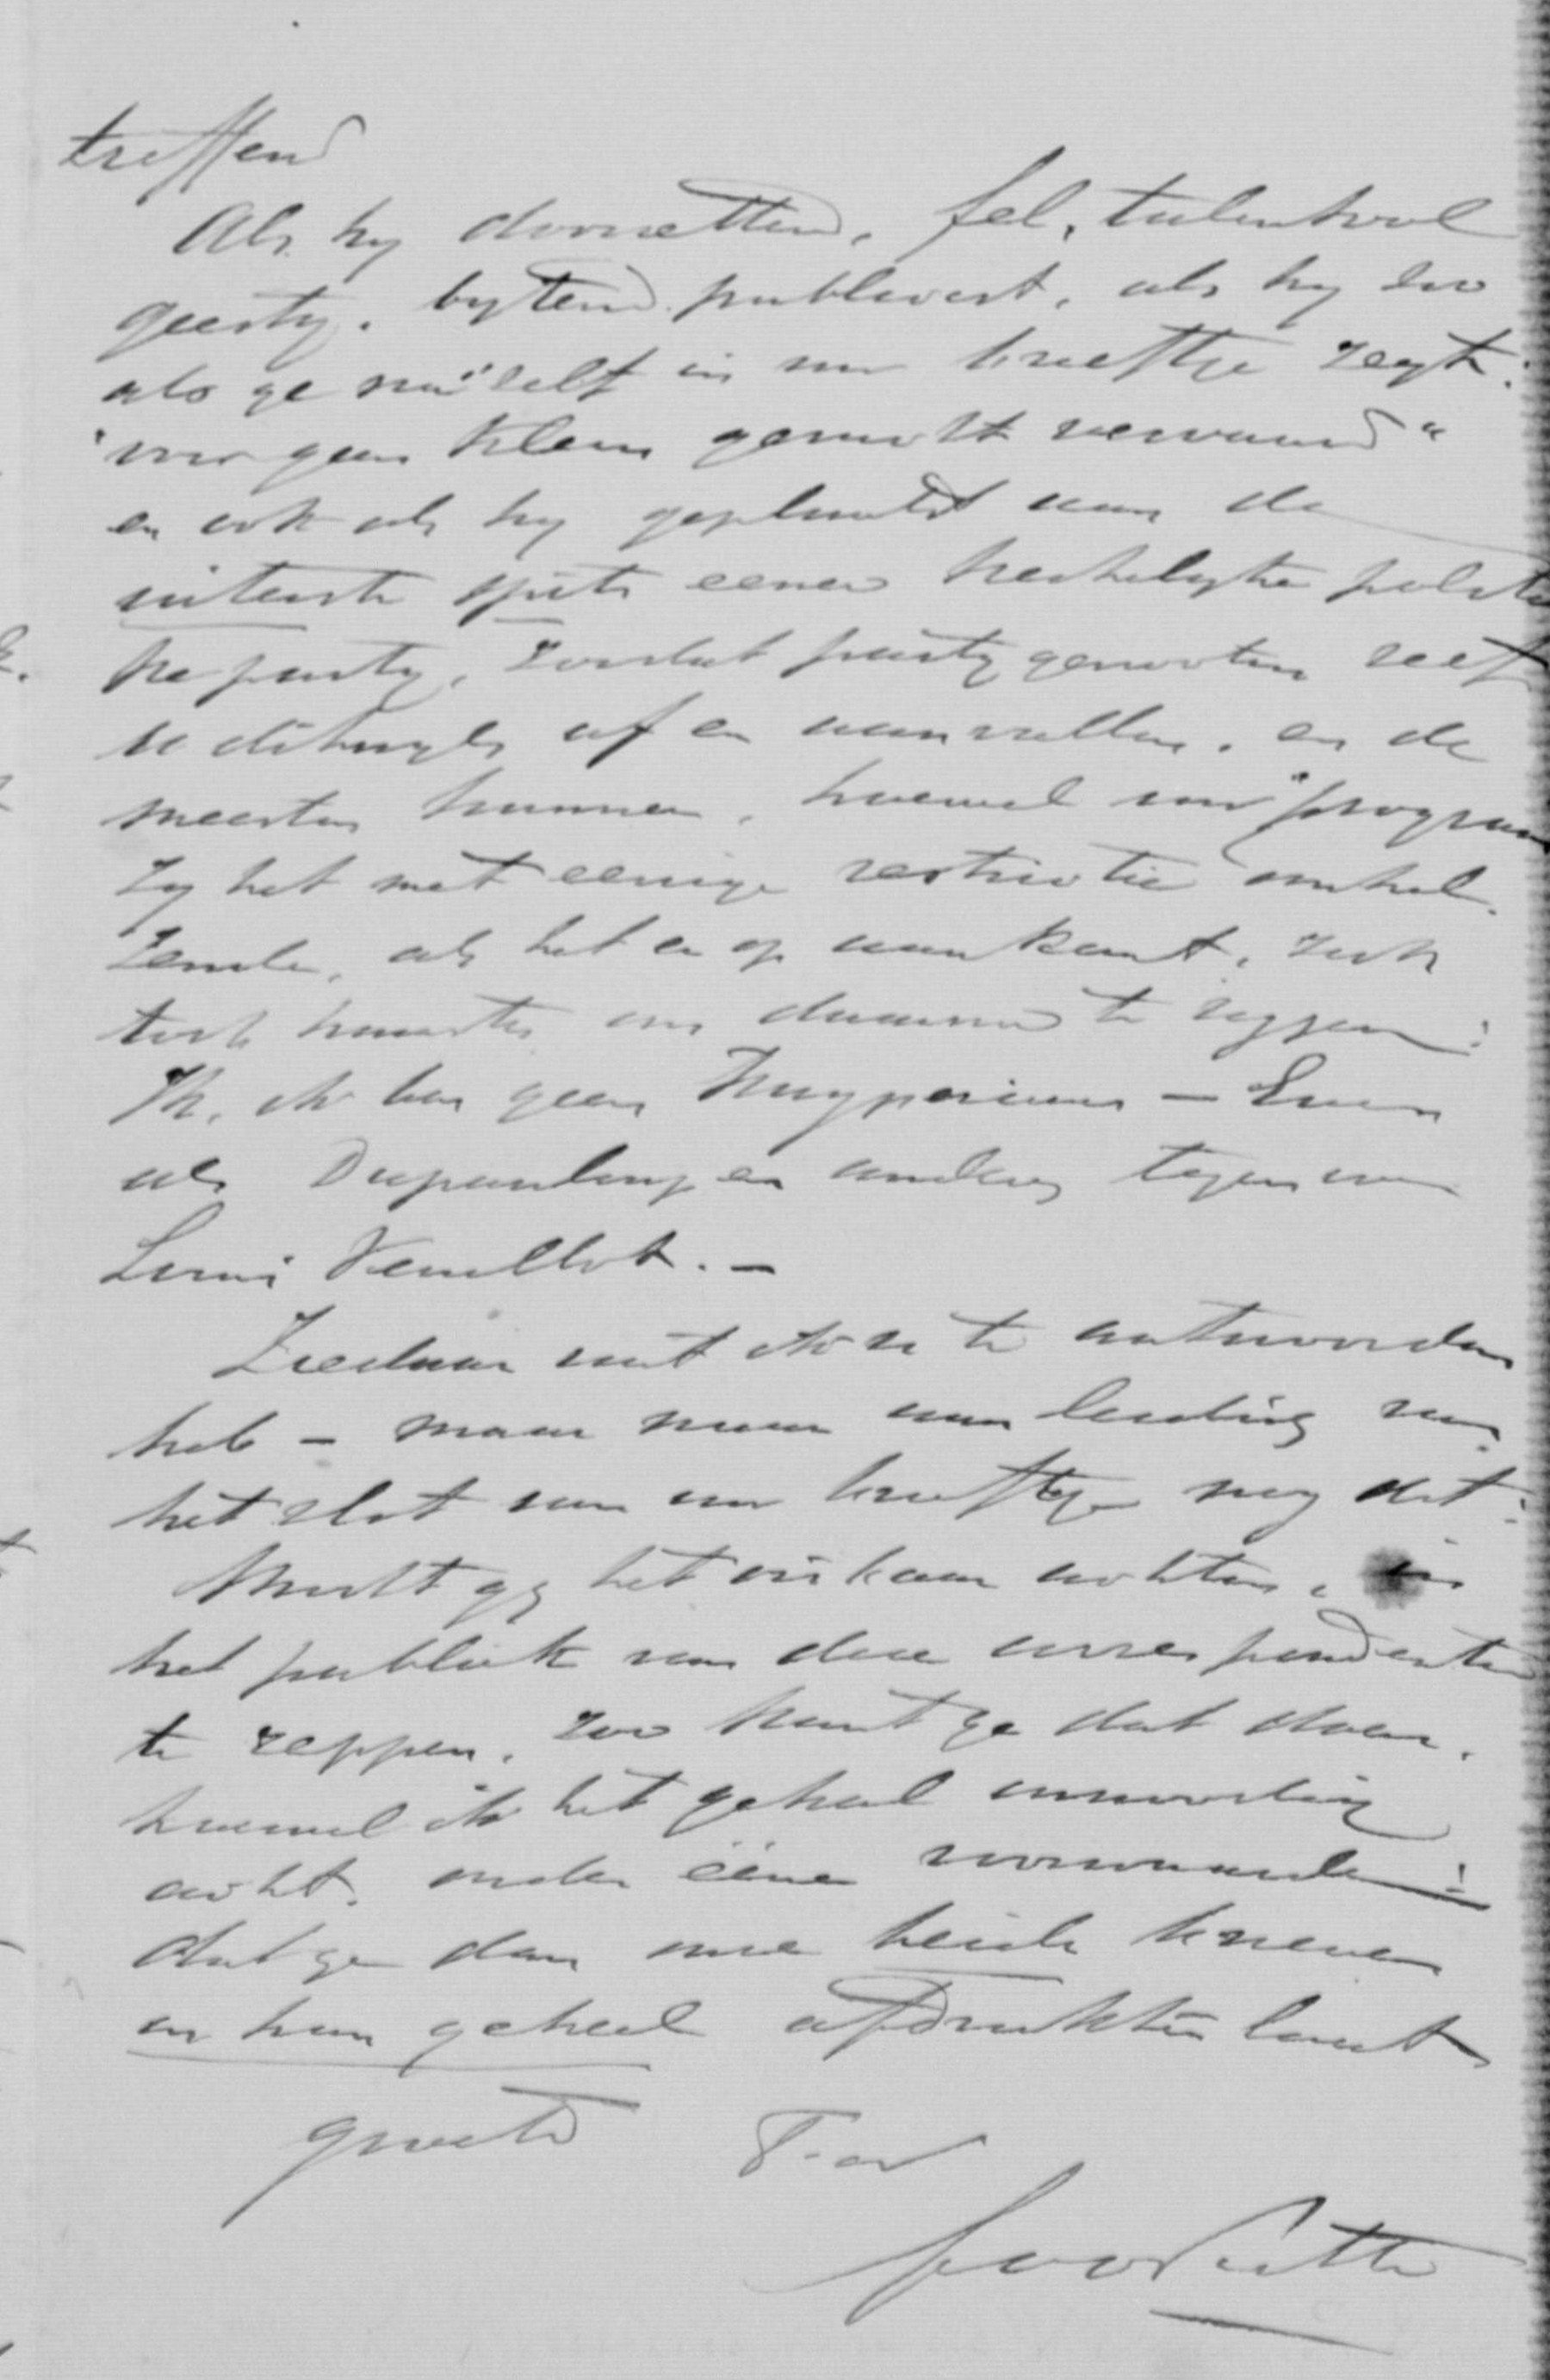 treffend
Als hy doorzettend, fel, talentvol
geestig, bytend publicist, als hy zoo
als ge nu zelf in uw briefje zegt:
"voor geen klein geruchtje vervaard"
en ook als hy geplaatst aan de
uiterste spits eener kerkelyke politie
ke party, zoodat partygenooten zelf
u dikwyls af en aanvallen, en de
meesten hunner, hoewel uw program
zy het met eenige restrictie omhel
zende, als het er op aan komt, zich
toch haasten om daarna te zeggen:
Ik, ik ben geen Kuyperiaan — Even
als Dupanloup en anderen tegenover
Louis Veuillot. —
Ziedaar wat ik u te antwoorden
heb – maar naar aanleiding van
het slot van uw briefje nog dit:
Mocht gy het oirbaar achten, in
het publiek van deze correspondentie
te reppen, zoo kunt ge dat doen,
hoewel ik het geheel onnoodig
acht, onder ééne voorwaarde:
dat ge dan onze beide brieven
in hun geheel afdrukken laat
groete T. a v